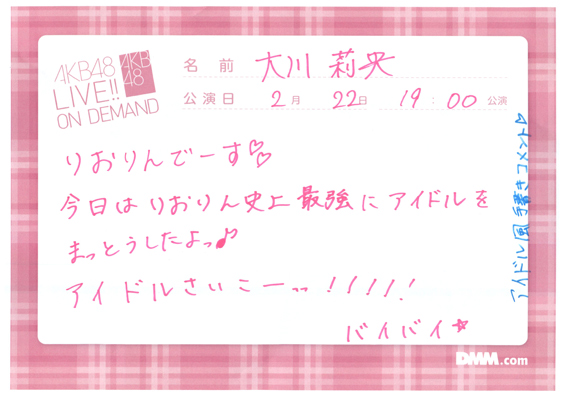 AKB48
LIVE!!
ON DEMAND
AKB
48
名前 大川 莉央
公演日 2月 22日 19:00 公演
りおりんでーす♡♡
今日はりおりん史上最強にアイドルを
まっとうしたよっ♪
アイドルさいこーっっ!!!!!
バイバイ☆
アイドル風手書きコメント♪
DMM.com